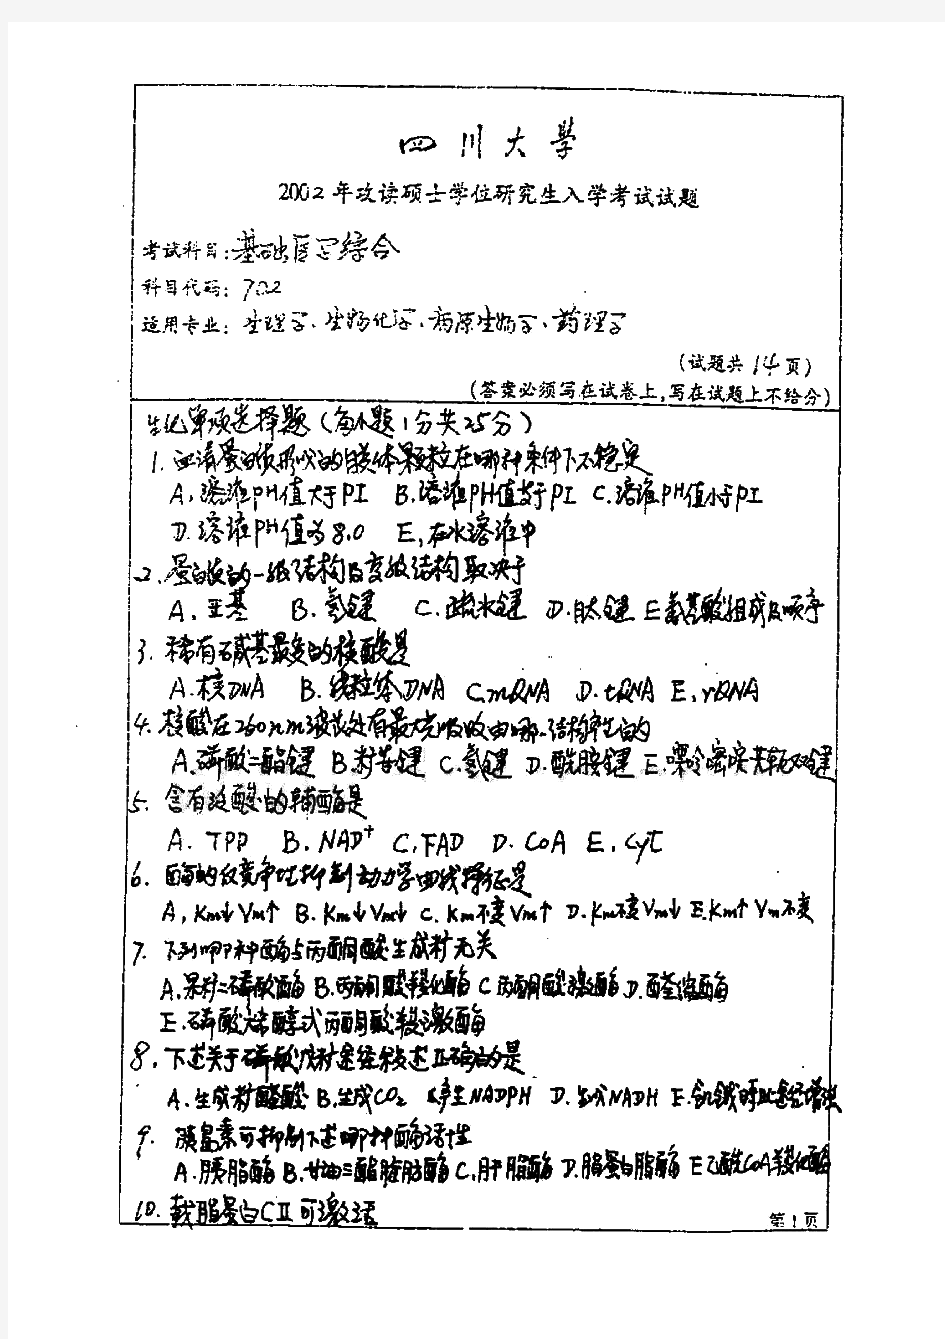 四川大学
2002年攻读硕士学位研究生入学考试试题
考试科目:基础医学综合
科目代码:702
适用专业:生理学、生物化学、病原生物学、药理学
(试题共14页)
(答案必须写在试卷上,写在试题上不给分)
生化单项选择题(每小题1分共25分)
1.血清蛋白质形成的胶体颗粒在哪种条件下不稳定
A.溶液PH值大于PI B.溶液PH值等于PI C.溶液PH值小于PI
D.溶液PH值为8.0 E.在水溶液中
2.蛋白质的一级结构及高级结构取决于
A.亚基 B.氢键 C.疏水键 D.肽键 E氨基酸组成及顺序
3.稀有碱基最多的核酸是
A.核DNA B.线粒体DNA C.mRNA D.tRNA E.rRNA
4.核酸在260nm波长处有最大光吸收由哪一结构产生的
A.磷酸二酯键 B.籽苷键 C.氢键 D.酰胺键 E.嘌呤嘧啶共轭双键
5.含有泛酸的辅酶是
A.TPP B.NAD⁺ C.FAD D.CoA E.CytC
6.酶的反竞争性抑制动力学曲线特征是
A.Km↓Vm↑ B.Km↓Vm↓ C.Km不变Vm↑ D.Km不变Vm↓ E.Km↑Vm不变
7.下列哪种酶与丙酮酸生成籽无关
A.果籽二磷酸酶 B.丙酮酸羧化酶 C丙酮酸激酶 D.醛缩酶
E.磷酸烯醇式丙酮酸羧激酶
8.下述关于磷酸戊籽途径叙述正确的是
A.生成籽醛酸 B.生成CO₂ C产生NADPH D.生成NADH E.饥饿时此途径增强
9.胰岛素可抑制下述哪种酶活性
A.胰脂酶 B.甘油三酯脂肪酶 C.肝脂酶 D.脂蛋白脂酶 E乙酰CoA羧化酶
10.载脂蛋白CⅡ可激活
第1页